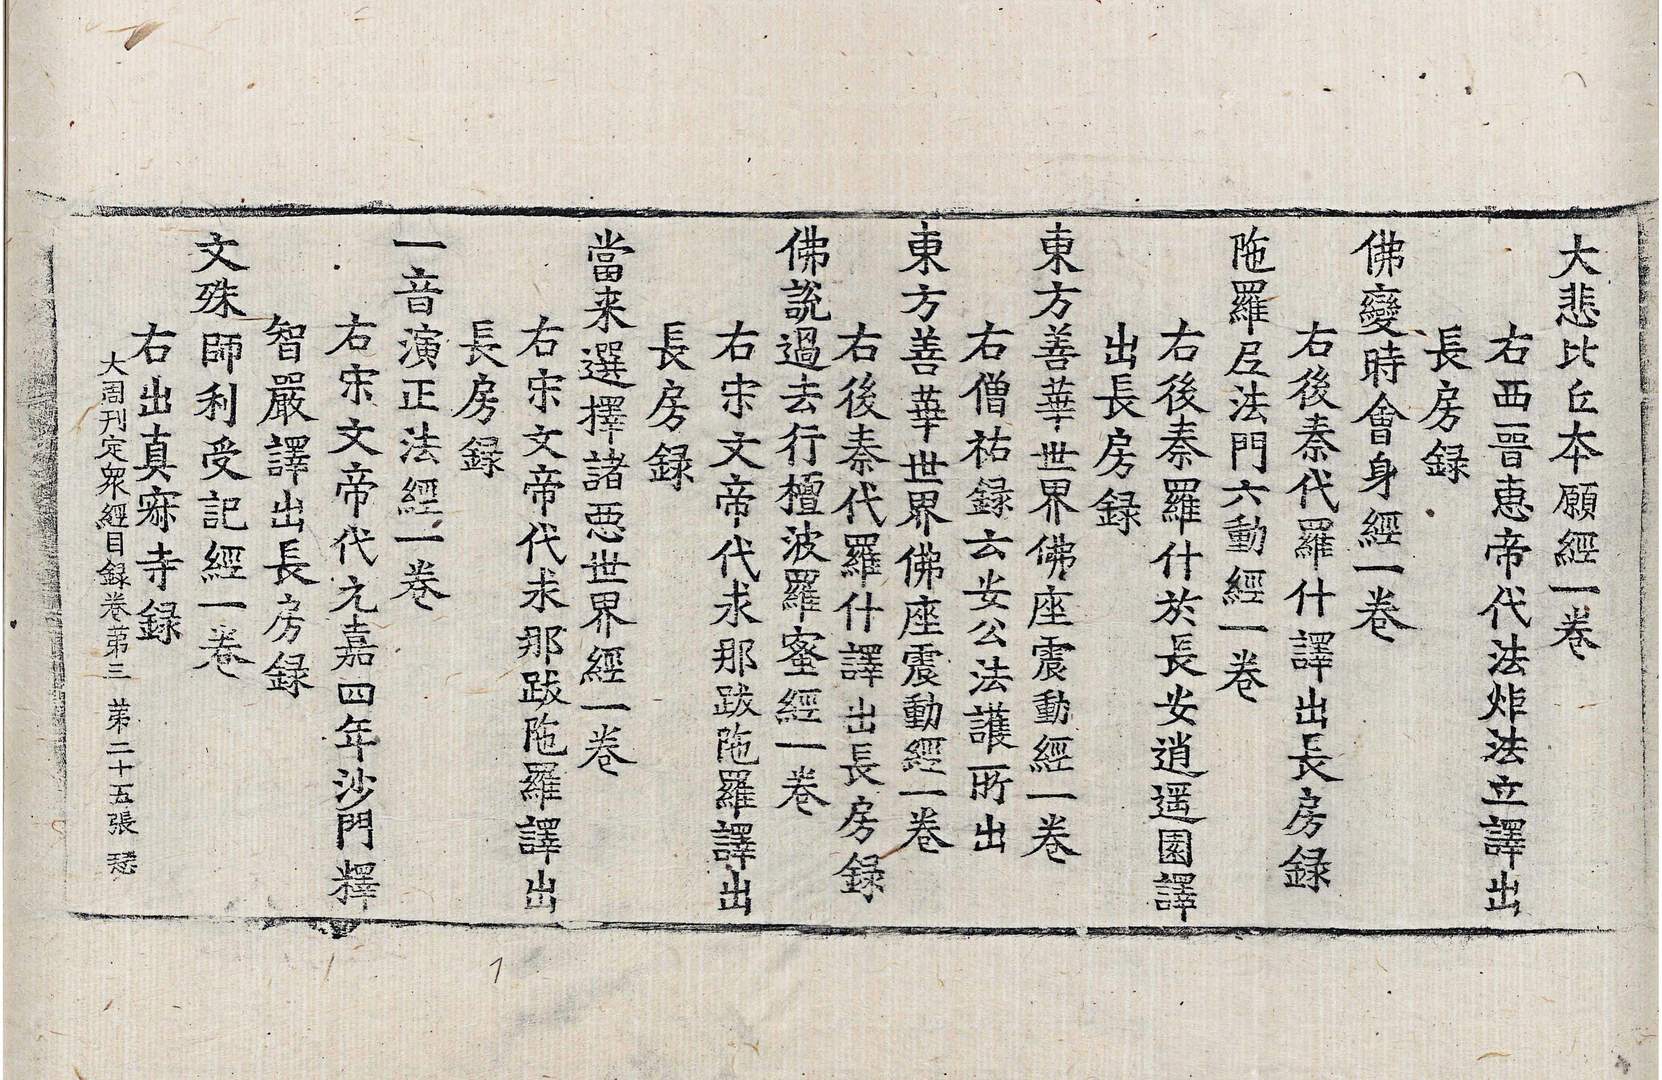 大悲比丘本願經一卷
右西晉惠帝代法炬法立譯出
長房録
佛變時會身經一卷
右後秦代羅什譯出長房録
陁羅尼法門六動經一卷
右後秦羅什於長安逍遥園譯
出長房録
東方善華世界佛座震動經一卷
右僧祐録云安公法護所出
東方善華世界佛座震動經一卷
右後秦代羅什譯出長房録
佛説過去行檀波羅蜜經一卷
右宋文帝代求那跋陁羅譯出
長房録
當来選擇諸惡世界經一卷
右宋文帝代求那跋陁羅譯出
長房録
一音演正法經一卷
右宋文帝代元嘉四年沙門釋
智嚴譯出長房録
文殊師利受記經一卷
右出真寂寺録
大周刊定衆經目録卷苐三 苐二十五張